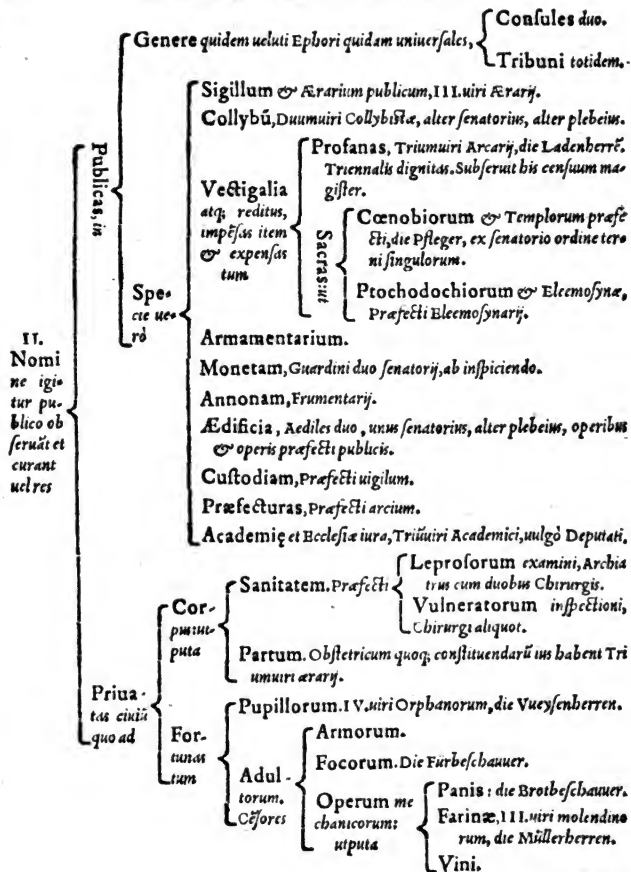 Consules duo.
Genere quidem ueluti Ephori quidam uniuersales,
Tribuni totidem.
Publicas, in
Sigillum & Ærarium publicum, III.uiri Ærarij.
Collybũ, Duumuiri Collybistæ, alter senatorius, alter plebeius.
Vectigalia
atq; reditus,
impẽsas item
& expensas
tum
Profanas, Triumuiri Arcarij, die Ladenherrẽ.
Triennalis dignitas. Subseruit his censuum ma-
gister.
Sacras: ut
Cœnobiorum & Templorum præfe
cti, die Pfleger, ex senatorio ordine ter-
ni singulorum.
Ptochodochiorum & Eleemosynæ,
Præfecti Eleemosynarij.
Spe-
cie ue-
rò
Armamentarium.
Monetam, Guardini duo senatorij, ab inspiciendo.
Annonam, Frumentarij.
Ædificia, Aediles duo, unus senatorius, alter plebeius, operibus
& operis præfecti publicis.
Custodiam, Præfecti uigilum.
Præfecturas, Præfecti arcium.
Academię et Ecclesiæ iura, Triũuiri Academici, uulgò Deputati.
II.
Nomi
ne igi-
tur pu-
blico ob
seruãt et
curant
uel res
Priua-
tas ciuiũ
quo ad
Cor-
pus: ut-
puta
Sanitatem. Præfecti
Leprosorum examini, Archia
trus cum duobus Chirurgis.
Vulneratorum inspectioni,
Chirurgi aliquot.
Partum. Obstetricum quoq; constituendarũ ius habent Tri
umuiri ærarij.
For-
tunas
tum
Pupillorum. IV.uiri Orphanorum, die Vueysenherren.
Adul-
torum.
Cẽsores
Armorum.
Focorum. Die Fürbeschauuer.
Operum me
chanicorum:
utputa
Panis: die Brotbeschauuer.
Farinæ, III.uiri molendino
rum, die Müllerherren.
Vini.